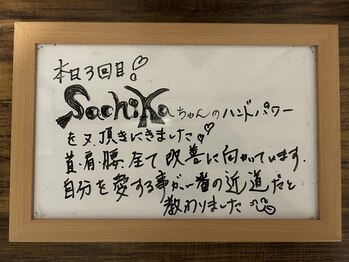 本日3回目!
Sachikaちゃんのハンドパワー
を又、頂きにきました!
首、肩、腰、全て改善に向かっています。
自分を愛する事が一番の近道だと
教わりました